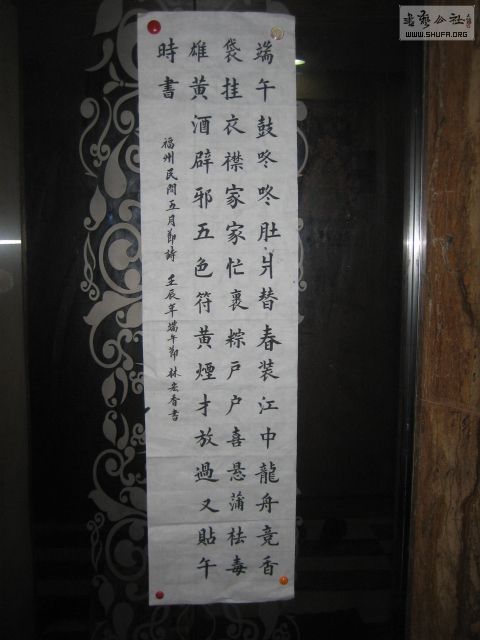 端午鼓咚咚肚爿替春装江中龍舟竞香
袋挂衣襟家家忙裹粽戸户喜悬蒲祛毒
雄黄酒辟邪五色符黄煙才放過又貼午
時書
福州民間五月節詩 壬辰年端午節 林宏香書
書藝公社
WWW.SHUFA.ORG